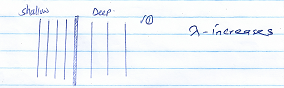 shallow Deep /①
λ-increases